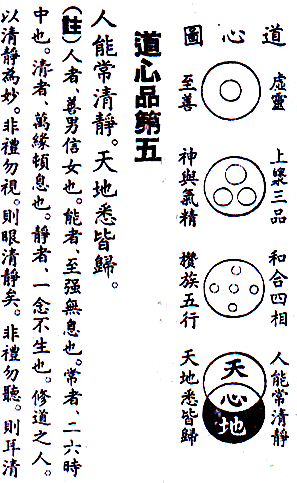 道心圖
虛靈
至善
上藥三品
神與氣精
和合四相
攢族五行
人能常清靜
天地悉皆歸
天
心
地
道心品第五
人能常清靜。天地悉皆歸。
(註)人者、善男信女也。能者、至强無息也。常者、二六時
中也。清者、萬緣頓息也。靜者、一念不生也。修道之人。
以清靜為妙。非禮勿視。則眼清靜矣。非禮勿聽。則耳清